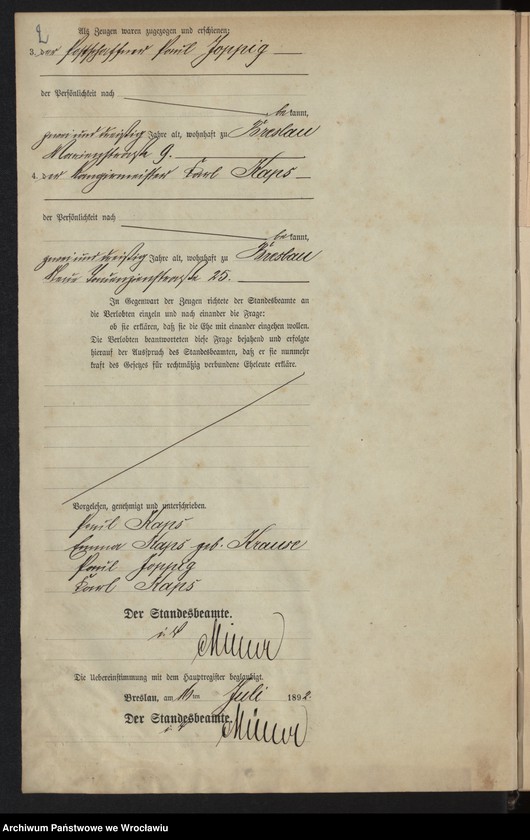 2
Als Zeugen waren zugezogen und erschienen:
3. der Postschaffner Paul Joppig
der Persönlichkeit nach
bekannt,
zwei und dreißig Jahre alt, wohnhaft zu Breslau
Marienstraße 9.
4. der Rangirmeister Karl Kaps
der Persönlichkeit nach
bekannt,
zwei und dreißig Jahre alt, wohnhaft zu Breslau
Neue Tauenzienstraße 25.
In Gegenwart der Zeugen richtete der Standesbeamte an
die Verlobten einzeln und nach einander die Frage:
ob sie erklären, daß sie die Ehe mit einander eingehen wollen.
Die Verlobten beantworteten diese Frage bejahend und erfolgte
hierauf der Ausspruch des Standesbeamten, daß er sie nunmehr
kraft des Gesetzes für rechtmäßig verbundene Eheleute erkläre.
Vorgelesen, genehmigt und unterschrieben.
Paul Kaps
Emma Kaps geb. Krause
Paul Joppig
Karl Kaps
Der Standesbeamte.
i. V.
Die Uebereinstimmung mit dem Hauptregister beglaubigt.
Breslau, am ten Juli 1892.
Der Standesbeamte.
i. V.
Archiwum Państwowe we Wrocławiu